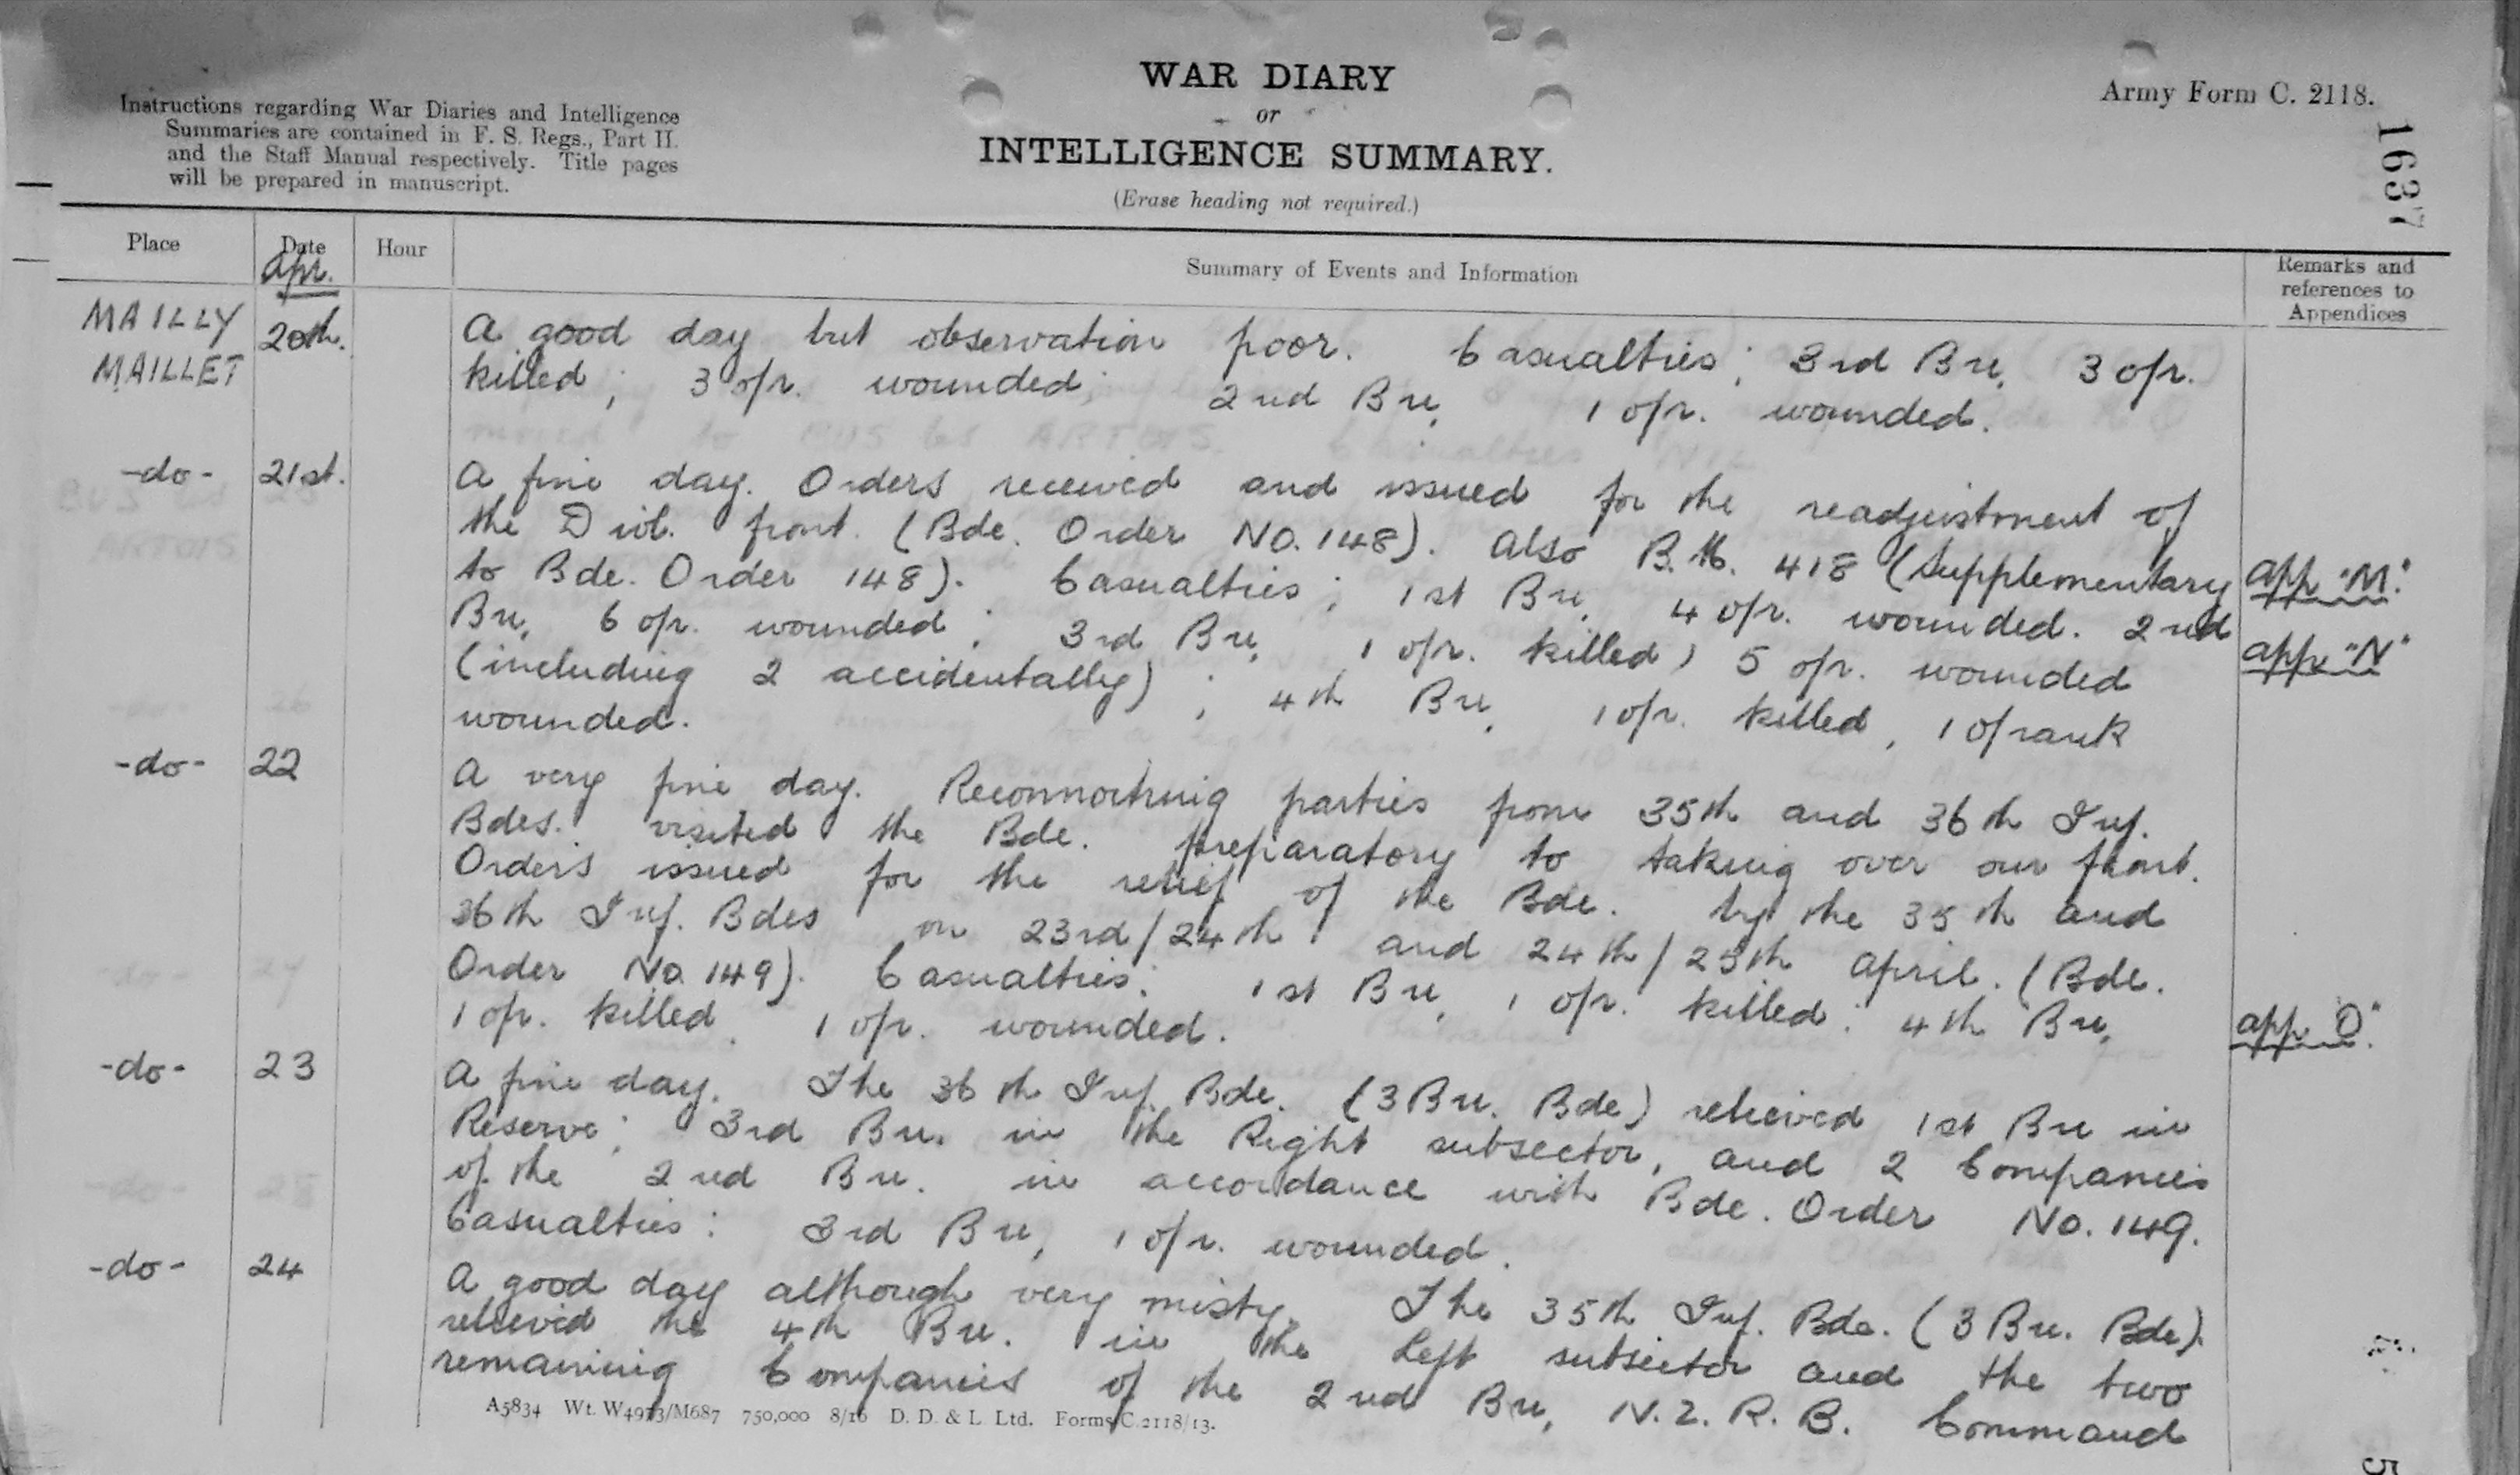 WAR DIARY
or
INTELLIGENCE SUMMARY.
(Erase heading not required.)
Army Form C. 2118.
1637
Instructions regarding War Diaries and Intelligence
Summaries are contained in F. S. Regs., Part II.
and the Staff Manual respectively. Title pages
will be prepared in manuscript.
Place Date Hour Summary of Events and Information Remarks and references to Appendices
Apr.
MAILLY MAILLET 20th. A good day but observation poor. Casualties; 3rd Bn, 3 o/r.
killed; 3 o/r. wounded; 2nd Bn, 1 o/r. wounded.
-do- 21st. A fine day. Orders received and issued for the readjustment of
the Divl. front. (Bde. Order No. 148). Also B.M. 418 (Supplementary app "M."
to Bde. Order 148). Casualties; 1st Bn, 4 o/r. wounded. 2nd
Bn, 6 o/r. wounded; 3rd Bn, 1 o/r. killed, 5 o/r. wounded app "N"
(including 2 accidentally); 4th Bn, 1 o/r. killed, 1 o/rank
wounded.
-do- 22 A very fine day. Reconnoitring parties from 35th and 36th Inf.
Bdes. visited the Bde. preparatory to taking over our front.
Orders issued for the relief of the Bde. by the 35th and
36th Inf. Bdes on 23rd/24th and 24th/25th April. (Bde.
Order No. 149). Casualties: 1st Bn, 1 o/r. killed: 4th Bn, app O"
1 o/r. killed, 1 o/r. wounded.
-do- 23 A fine day. The 36th Inf. Bde. (3 Bn. Bde) relieved 1st Bn in
Reserve; 3rd Bn. in the Right subsector, and 2 Companies
of the 2nd Bn. in accordance with Bde. Order No. 149.
Casualties: 3rd Bn, 1 o/r. wounded.
-do- 24 A good day although very misty. The 35th Inf. Bde. (3 Bn. Bde).
relieved the 4th Bn. in the Left subsector and the two
remaining Companies of the 2nd Bn, N.Z.R.B. Command
A5834 Wt. W4973/M687 750,000 8/16 D. D. & L. Ltd. Forms/C.2118/13.
5